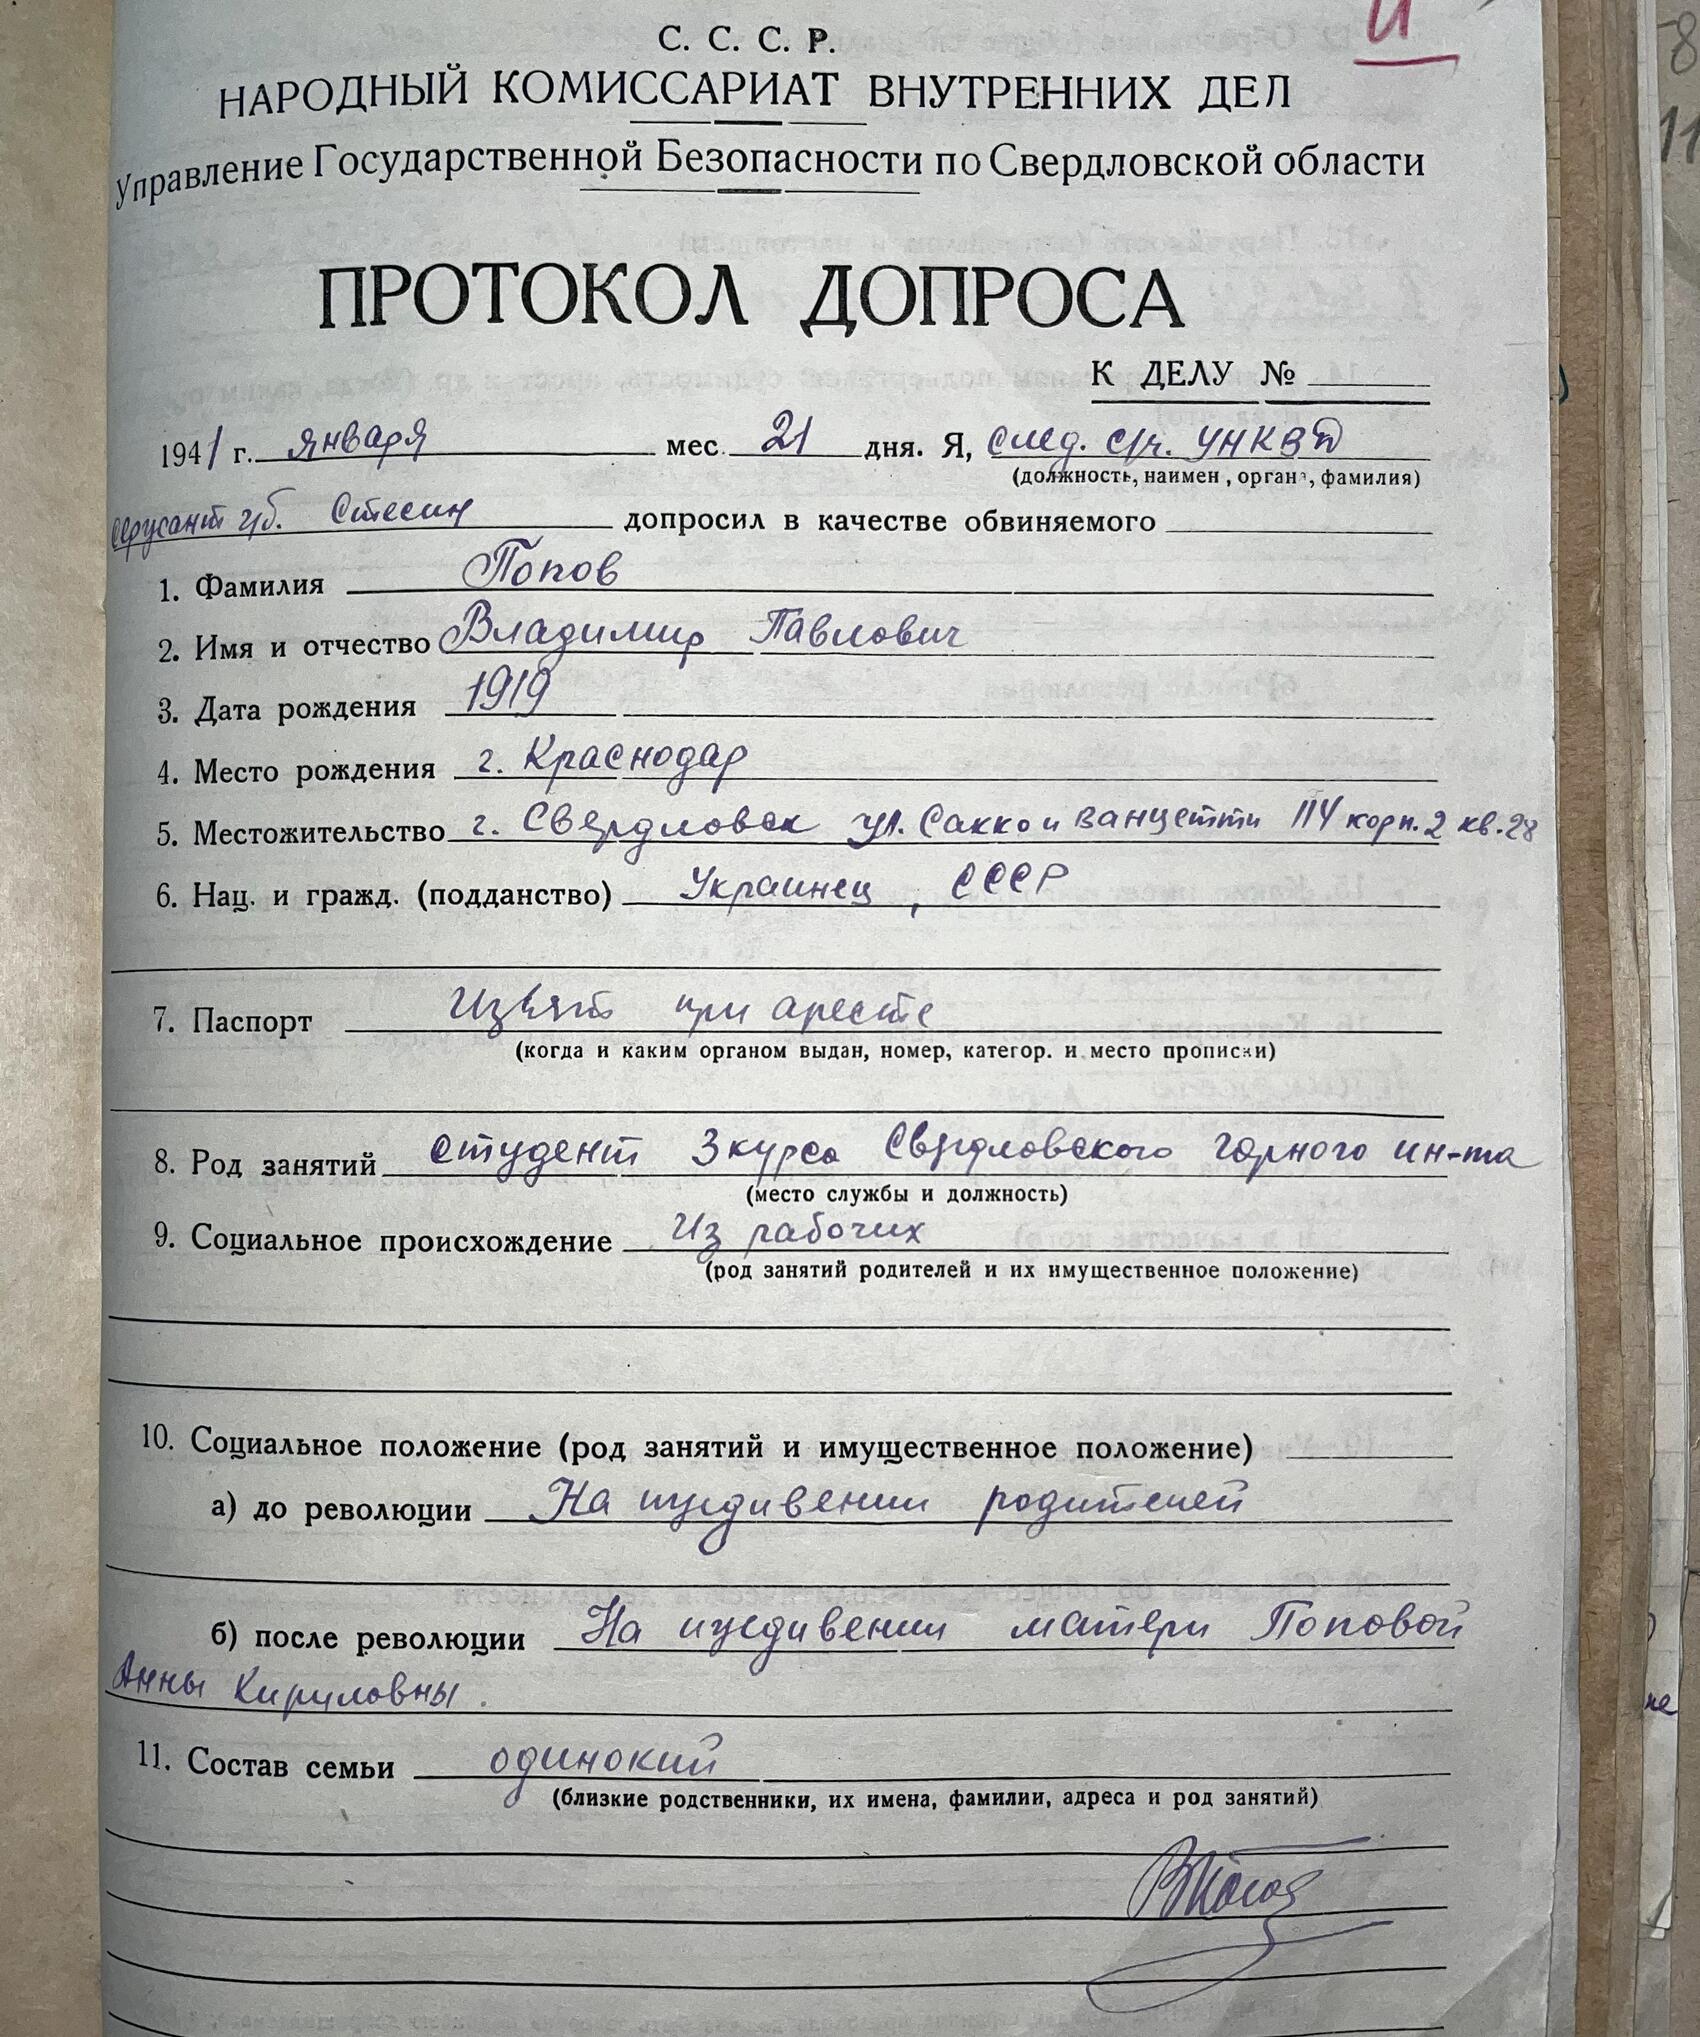 С. С. С. Р.
НАРОДНЫЙ КОМИССАРИАТ ВНУТРЕННИХ ДЕЛ
Управление Государственной Безопасности по Свердловской области
ПРОТОКОЛ ДОПРОСА
К ДЕЛУ №
1941 г. января мес. 21 дня. Я, след. с/ч. УНКВД
(должность, наимен, орган, фамилия)
сержант г/б. Стесин допросил в качестве обвиняемого
1. Фамилия Попов
2. Имя и отчество Владимир Павлович
3. Дата рождения 1919
4. Место рождения г. Краснодар
5. Местожительство г. Свердловск ул. Сакко и Ванцетти корп. 2 кв. 28
6. Нац. и гражд. (подданство) Украинец, СССР
7. Паспорт Изъят при аресте
(когда и каким органом выдан, номер, категор. и место прописки)
8. Род занятий студент 3 курса Свердловского горного ин-та
(место службы и должность)
9. Социальное происхождение Из рабочих
(род занятий родителей и их имущественное положение)
10. Социальное положение (род занятий и имущественное положение)
а) до революции На иждивении родителей
б) после революции На иждивении матери Поповой
Анны Кириловны.
11. Состав семьи одинокий
(близкие родственники, их имена, фамилии, адреса и род занятий)